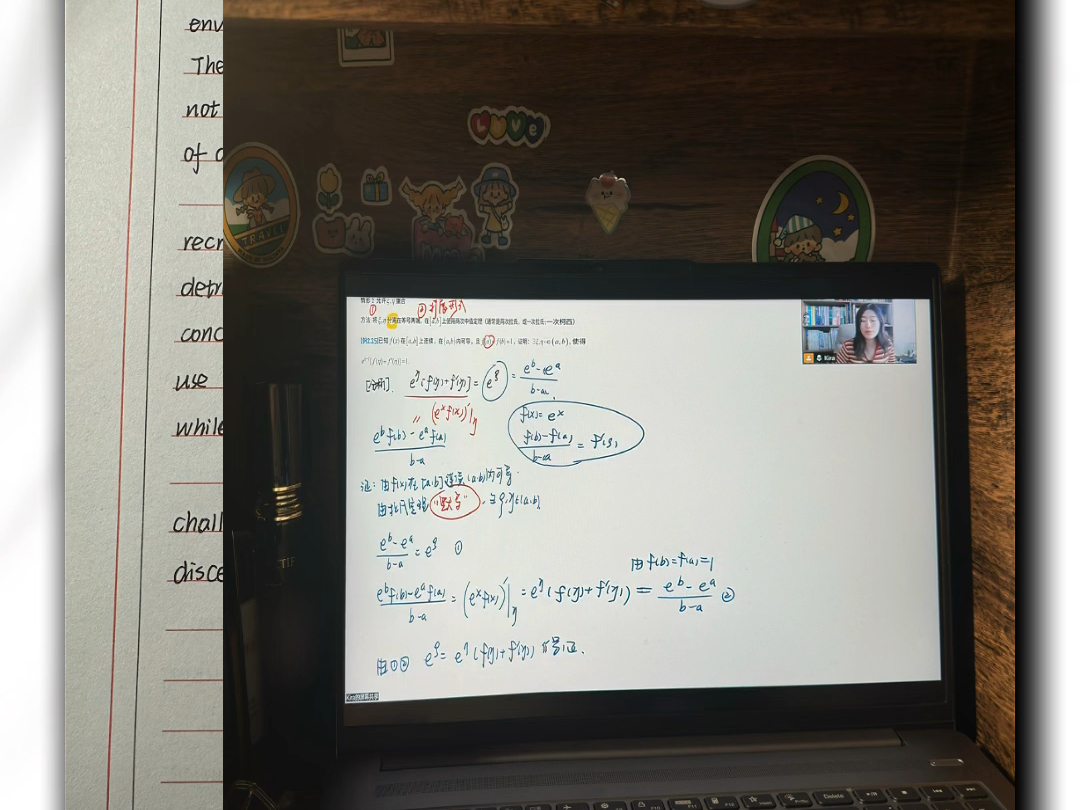 env
The
not
of a
recr
detr
conc
use
while
chall
disce
LOVE
TRAVEL
情形2
① ② 扩展形式
方法:将ξ,η分离在等号两端,在[a,b]上使用两次中值定理(通常是两次拉氏,或一次拉氏,一次柯西)
[例2.25]已知f(x)在[a,b]上连续,在(a,b)内可导,且f(a)=f(b)=1,证明:∃ξ,η∈(a,b),使得
e^{η-ξ}[f(η)+f'(η)]=1.
[分析]. e^η[f(η)+f'(η)] = e^ξ = (e^b-e^a)/(b-a).
" (e^x f(x))'|_η
f(x)=e^x
(e^b f(b)-e^a f(a))/(b-a)
(f(b)-f(a))/(b-a) = f'(ξ)
证:由f(x)在[a,b]连续(a,b)内可导.
由拉氏定理 ∃ξ,η∈(a,b)
(e^b-e^a)/(b-a) = e^ξ ①
由f(b)=f(a)=1
(e^b f(b)-e^a f(a))/(b-a) = (e^x f(x))'|_η = e^η(f(η)+f'(η)) = (e^b-e^a)/(b-a) ②
由①② e^ξ = e^η(f(η)+f'(η)) 得证.
Kira
Kira的屏幕共享
Delete